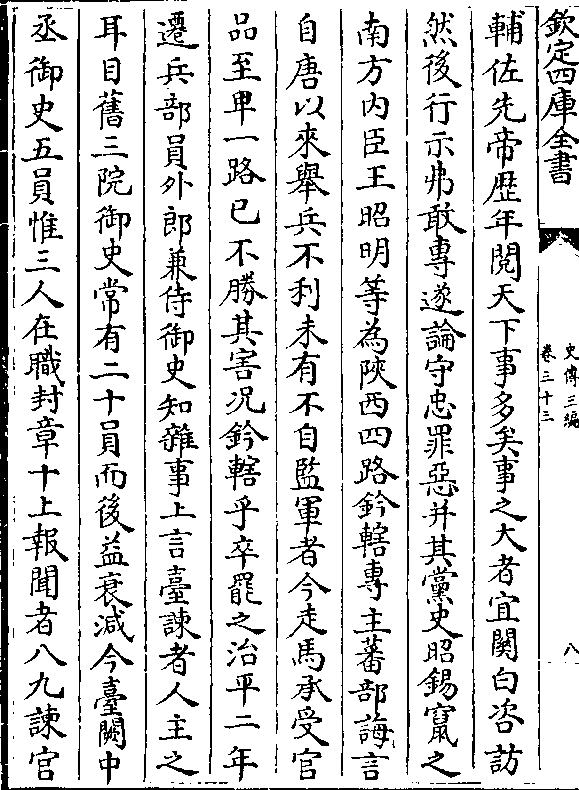 欽定四庫全書
史傳三編
卷三十三
八
輔佐先帝歴年閱天下事多矣事之大者宜關白咨訪
然後行示弗敢專遂論守忠罪惡并其黨史昭錫竄之
南方内臣王昭明等為陝西四路鈐轄專主蕃部誨言
自唐以來舉兵不利未有不自監軍者今走馬承受官
品至卑一路已不勝其害况鈐轄乎卒罷之治平二年
遷兵部員外郎兼侍御史知雜事上言臺諫者人主之
耳目舊三院御史常有二十員而後益衰減今臺闕中
丞御史五員惟三人在職封章十上報聞者八九諫官